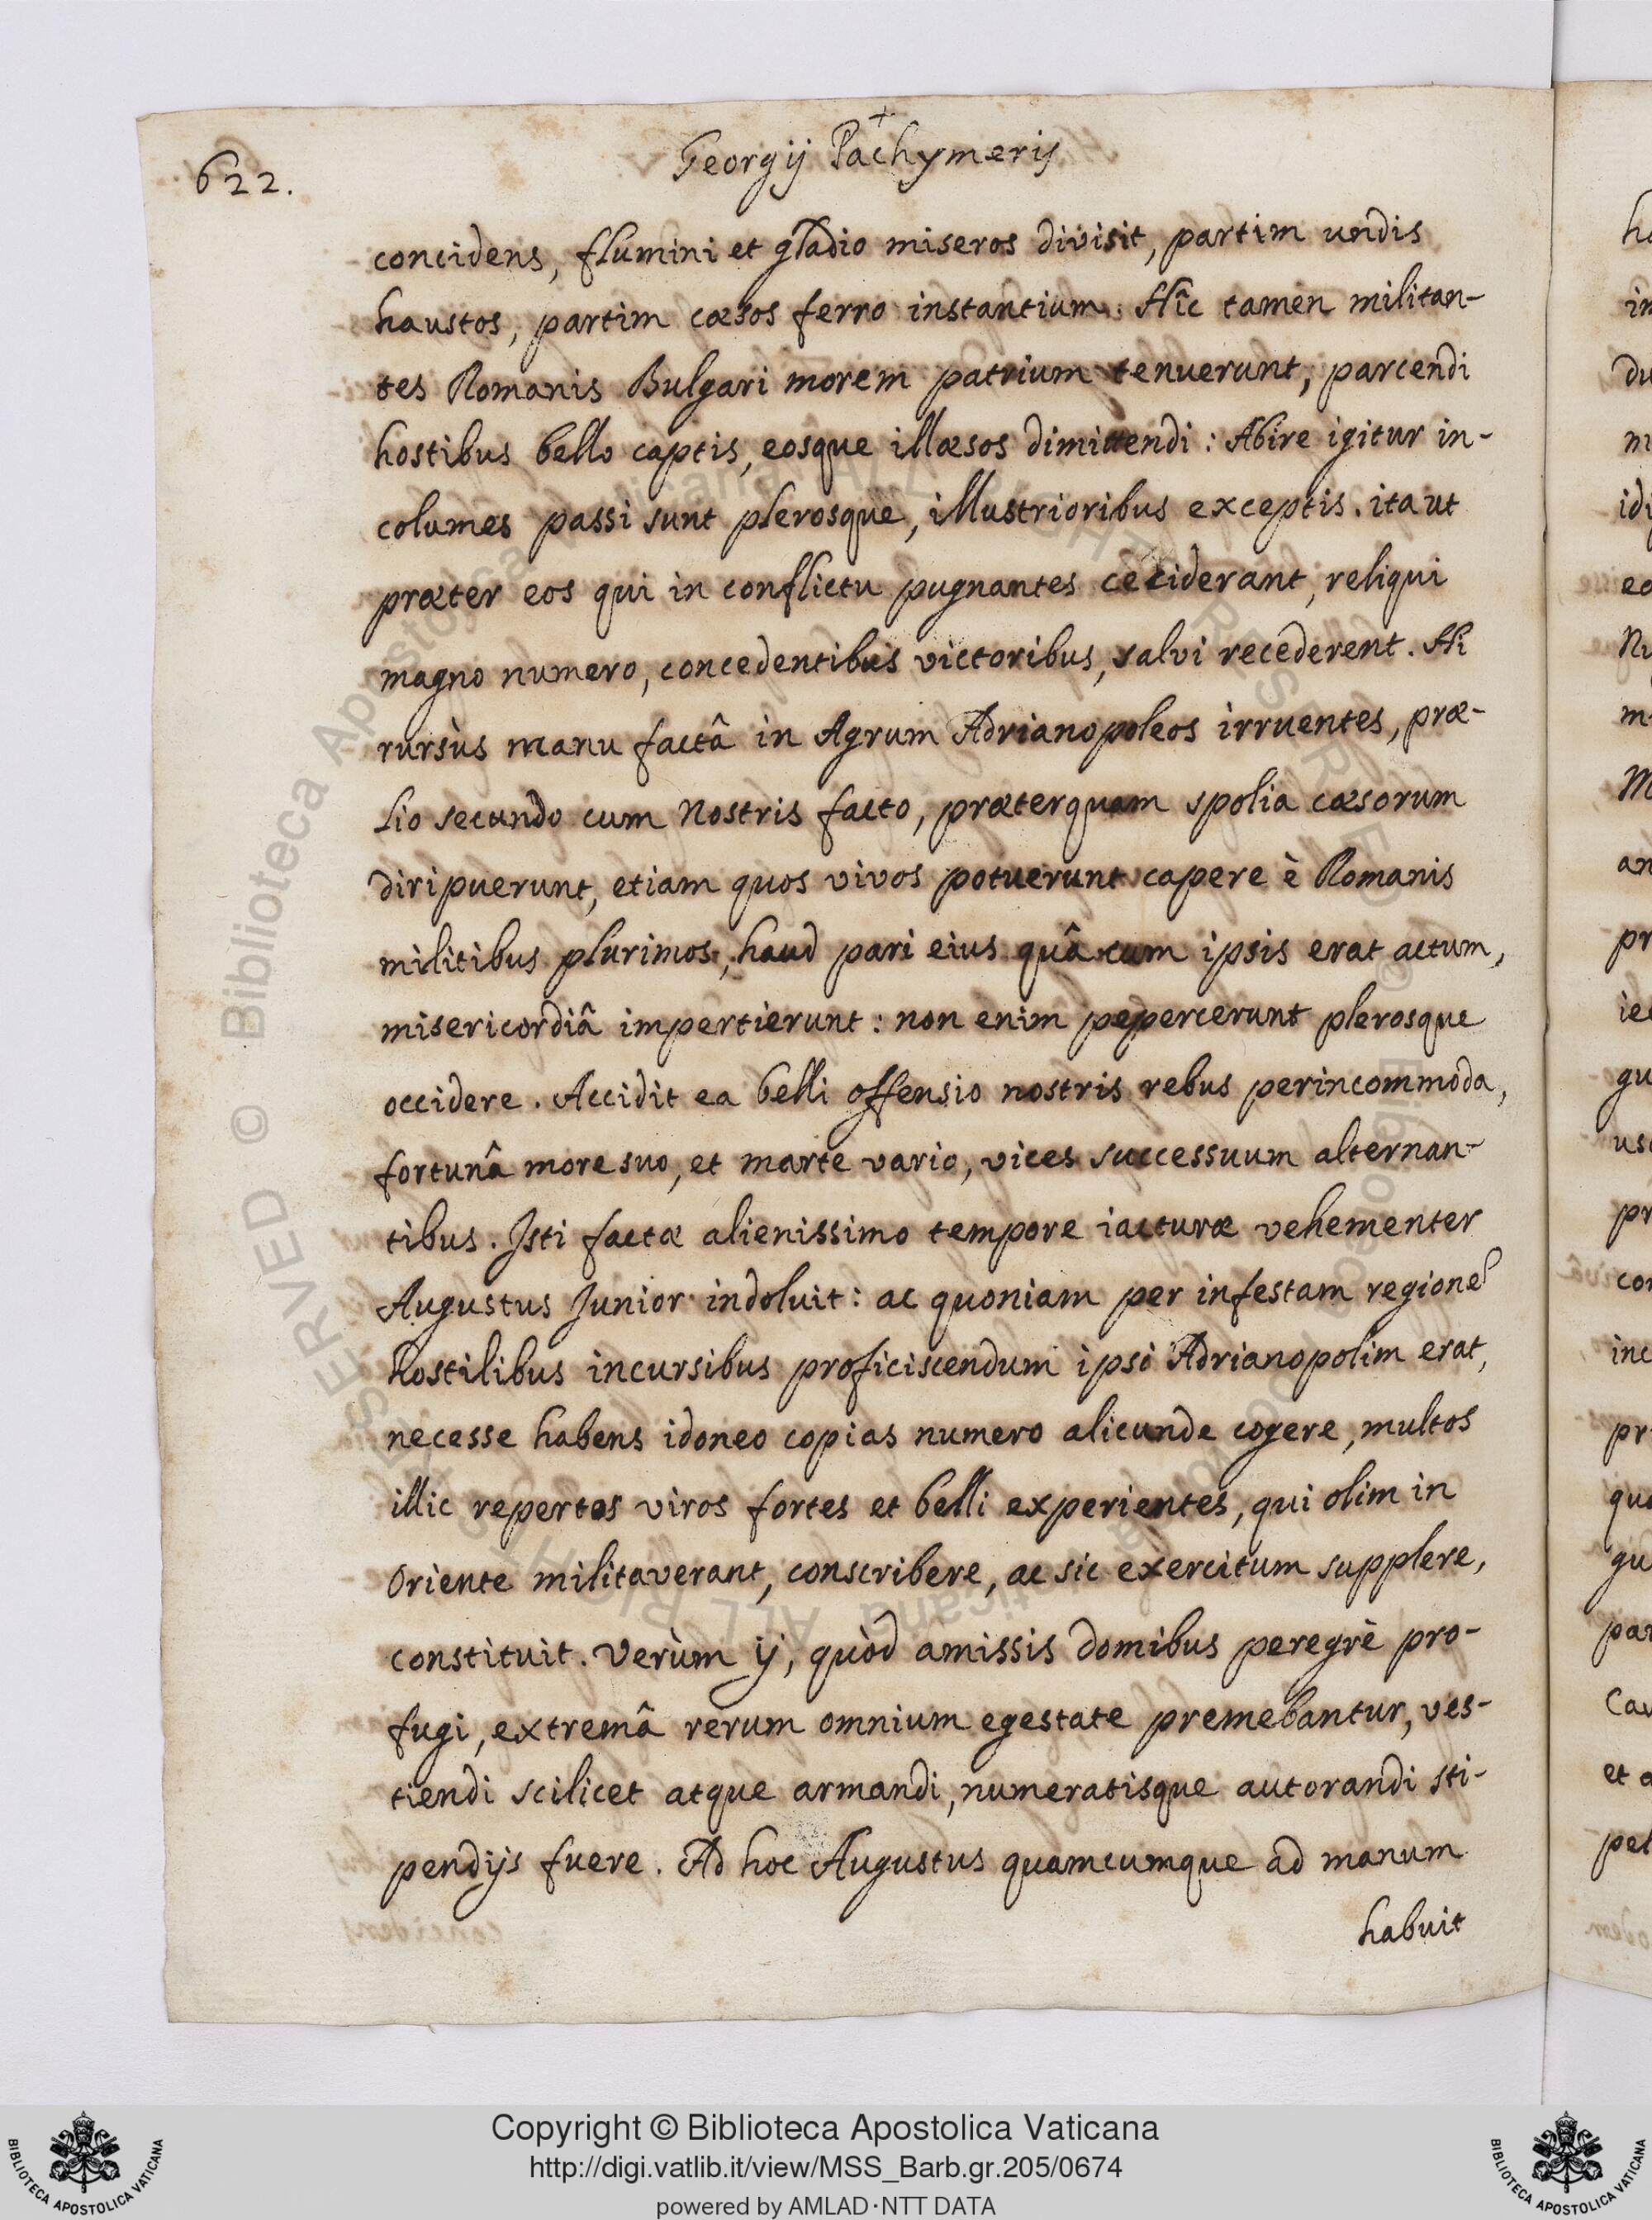 622.
Georgij Pachymeris
concidens, flumini et gladio miseros divisit, partim undis
haustos, partim cæsos ferro instantium. Hîc tamen militan-
tes Romanis Bulgari morem patrium tenuerunt, parcendi
hostibus bello captis, eosque illæsos dimittendi: Abire igitur in-
columes passi sunt plerosque, illustrioribus exceptis. ita ut
præter eos qui in conflictu pugnantes ceciderant, reliqui
magno numero, concedentibus victoribus, salvi recederent. Hi
rursùs manu factâ in Agrum Adrianopoleos irruentes, præ-
lio secundo cum Nostris facto, præterquam spolia cæsorum
diripuerunt, etiam quos vivos potuerunt capere è Romanis
militibus plurimos, haud pari eius quâ cum ipsis erat actum,
misericordiâ impertierunt: non enim pepercerunt plerosque
occidere. Accidit ea belli offensio nostris rebus perincommoda,
fortunâ more suo, et marte vario, vices successuum alternan-
tibus. Isti factæ alienissimo tempore iacturæ vehementer
Augustus Junior indoluit: ac quoniam per infestam regionē
hostilibus incursibus proficiscendum ipsi Adrianopolim erat,
necesse habens idoneo copias numero alicunde cogere, multos
illic repertos viros fortes et belli experientes, qui olim in
Oriente militaverant, conscribere, ac sic exercitum supplere,
constituit. Verùm ij, quòd amissis domibus peregrè pro-
fugi, extremâ rerum omnium egestate premebantur, ves-
tiendi scilicet atque armandi, numeratisque autorandi sti-
pendijs fuere. Ad hoc Augustus quamcumque ad manum
habuit
Copyright © Biblioteca Apostolica Vaticana
http://digi.vatlib.it/view/MSS_Barb.gr.205/0674
powered by AMLAD·NTT DATA
BIBLIOTECA APOSTOLICA VATICANA
BIBLIOTECA APOSTOLICA VATICANA